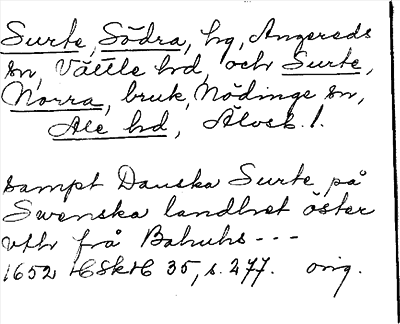 Surte, Södra, hg, Angereds
sn, Vättle hd, och Surte,
Norra, bruk, Nödinge sn,
Ale hd, Älvsb. l.
sampt Danska Surte på
Swenska landhet öster
vthr frå Bahuhs - - -
1652 HSkH 35, s. 277. orig.